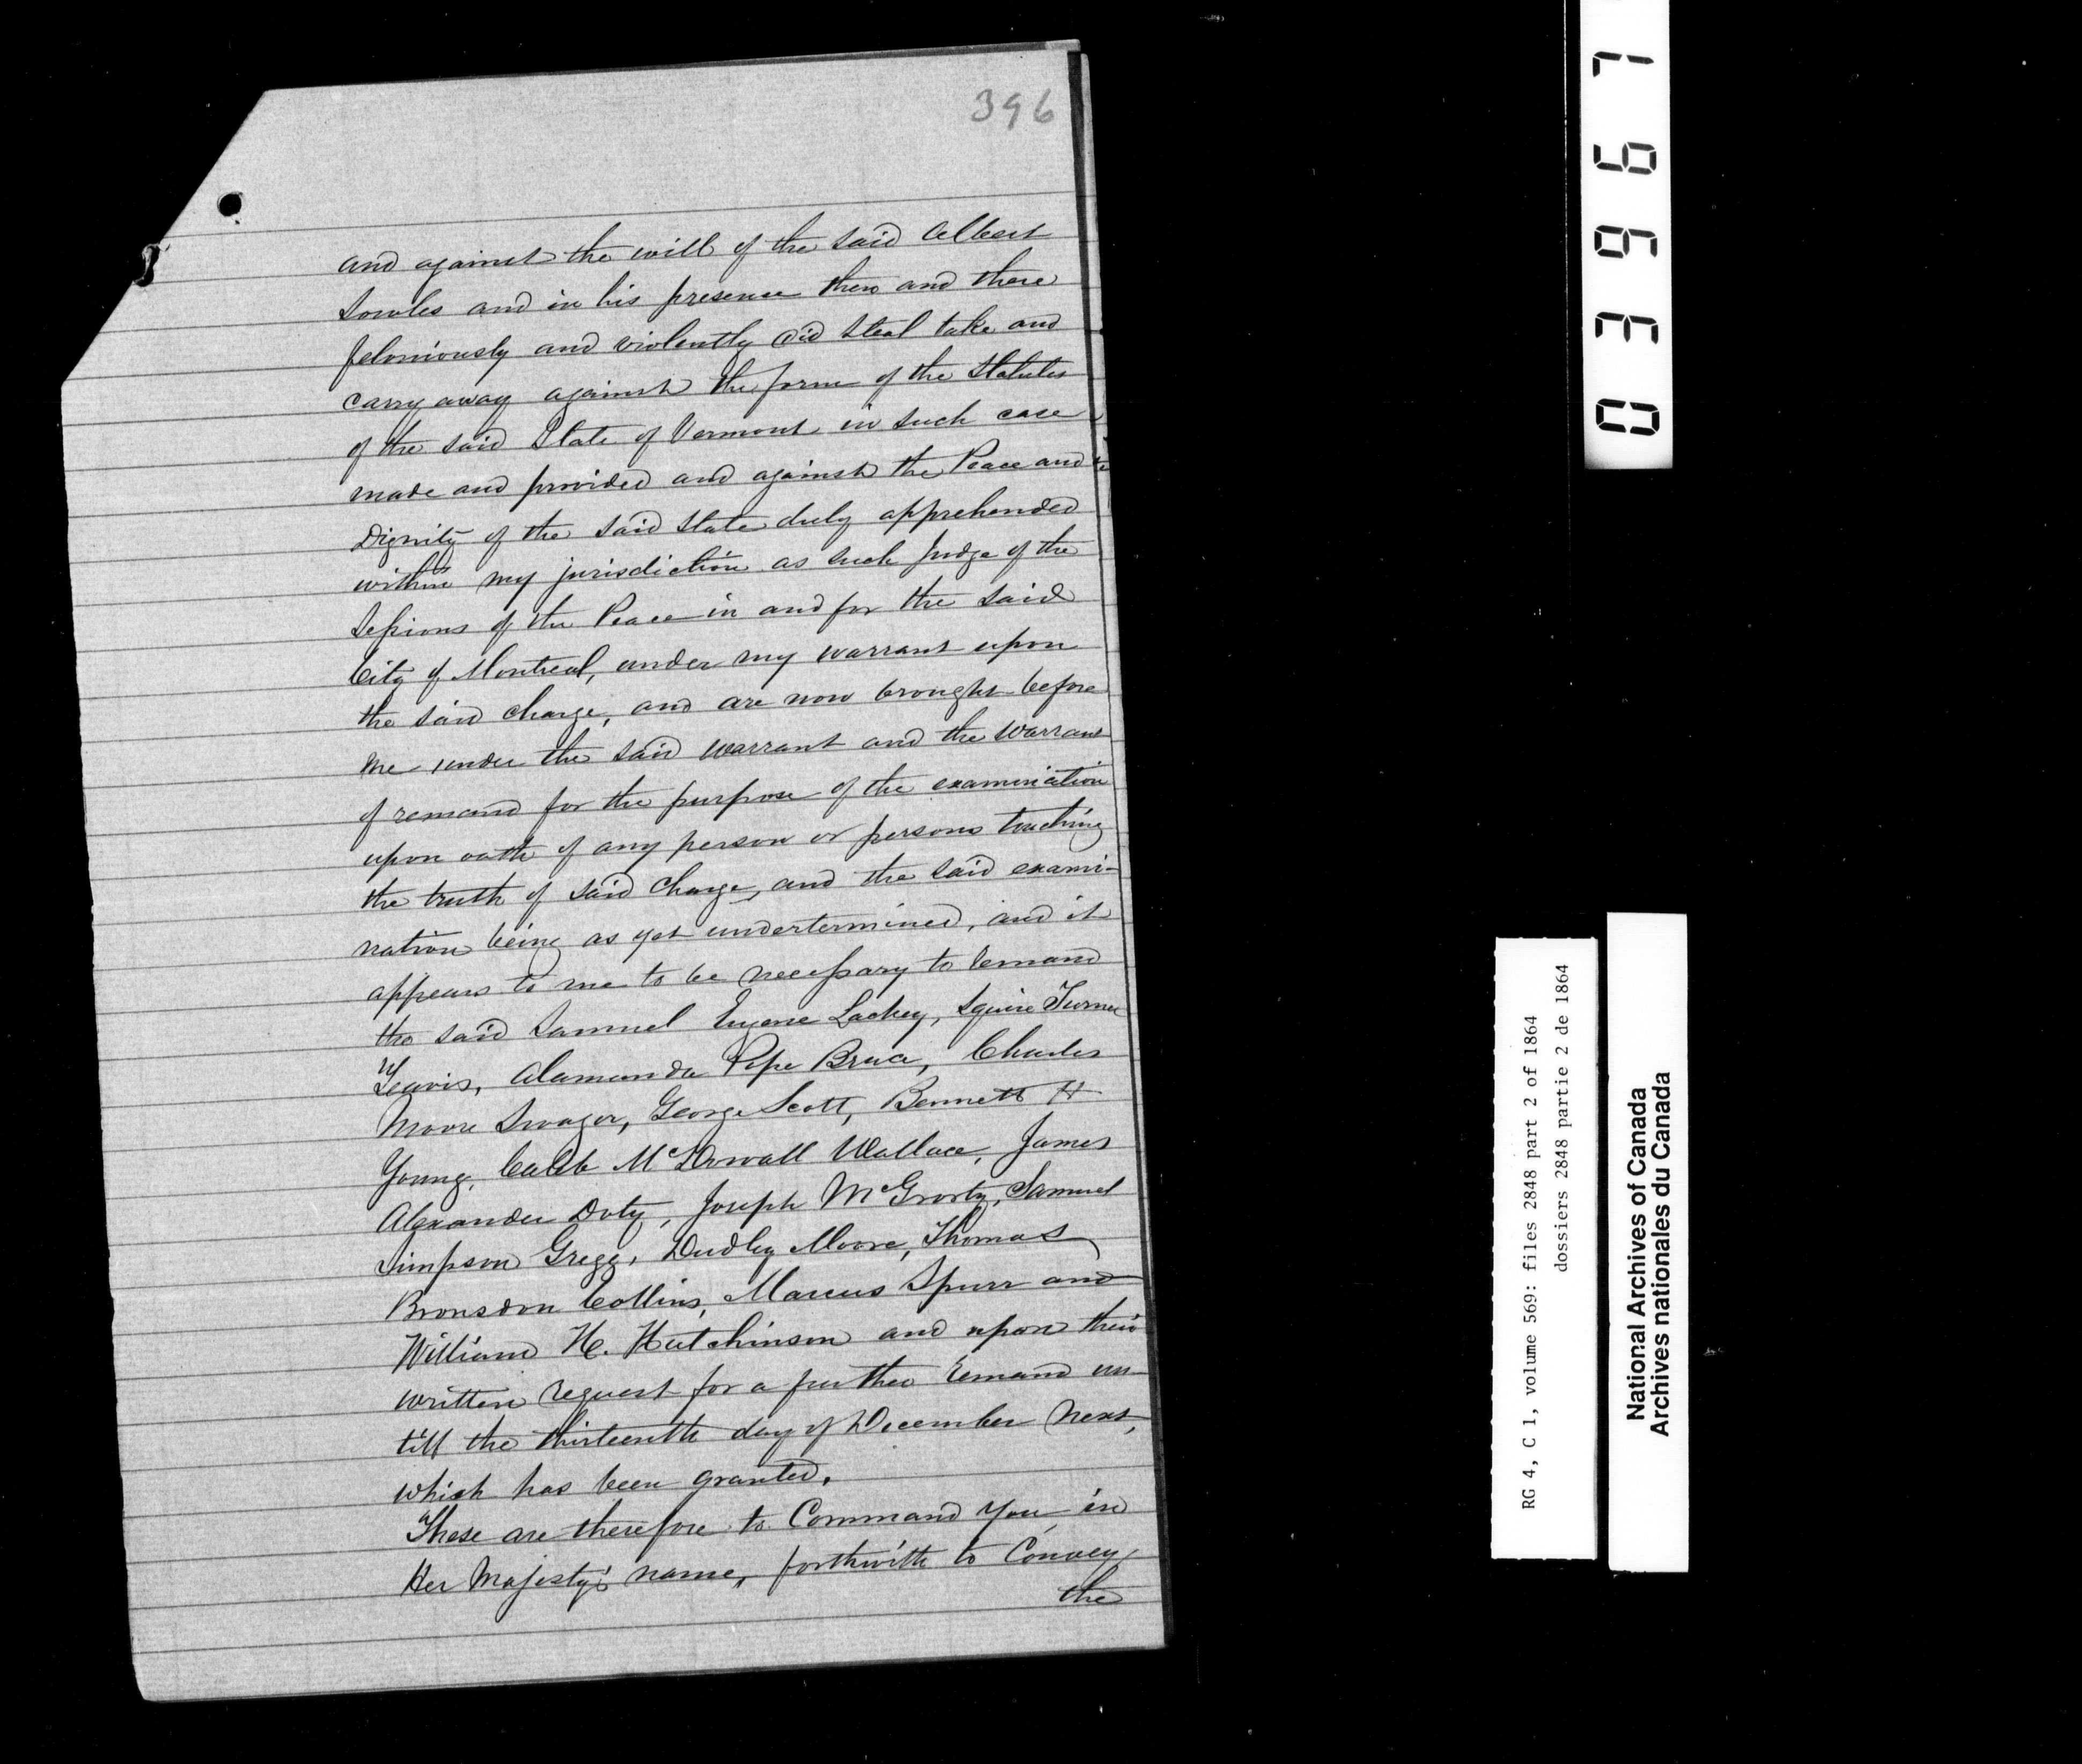 396
and against the will of the said Albert
Sowles and in his presence then and there
feloniously and violently did steal take and
carry away against the form of the Statutes
of the said State of Vermont in such case
made and provided and against the Peace and
Dignity of the said State duly apprehended
within my jurisdiction as such Judge of the
Sessions of the Peace in and for the said
City of Montreal, under my warrant upon
the said charge, and are now brought before
me under the said warrant and the warrant
of remand for the purpose of the examination
upon oath of any person or persons touching
the truth of said Charge, and the said exami-
nation being as yet undertermined, and it
appears to me to be necessary to remand
the said Samuel Eugene Lackey, Squire Turner
Teavis, Alamanda Pope Bruce, Charles
Moore Swager, George Scott, Bennett H
Young, Caleb McDowall Wallace, James
Alexander Doty, Joseph McGrorty, Samuel
Simpson Gregg, Dudley Moore, Thomas
Bronsdon Collins, Marcus Spurr and
William H. Hutchinson and upon their
written request for a further remand un-
till the thirteenth day of December Next,
which has been granted.
These are therefore to Command you in
Her Majesty's name, forthwith to Convey
the
03967
RG 4, C 1, volume 569: files 2848 part 2 of 1864
dossiers 2848 partie 2 de 1864
National Archives of Canada
Archives nationales du Canada